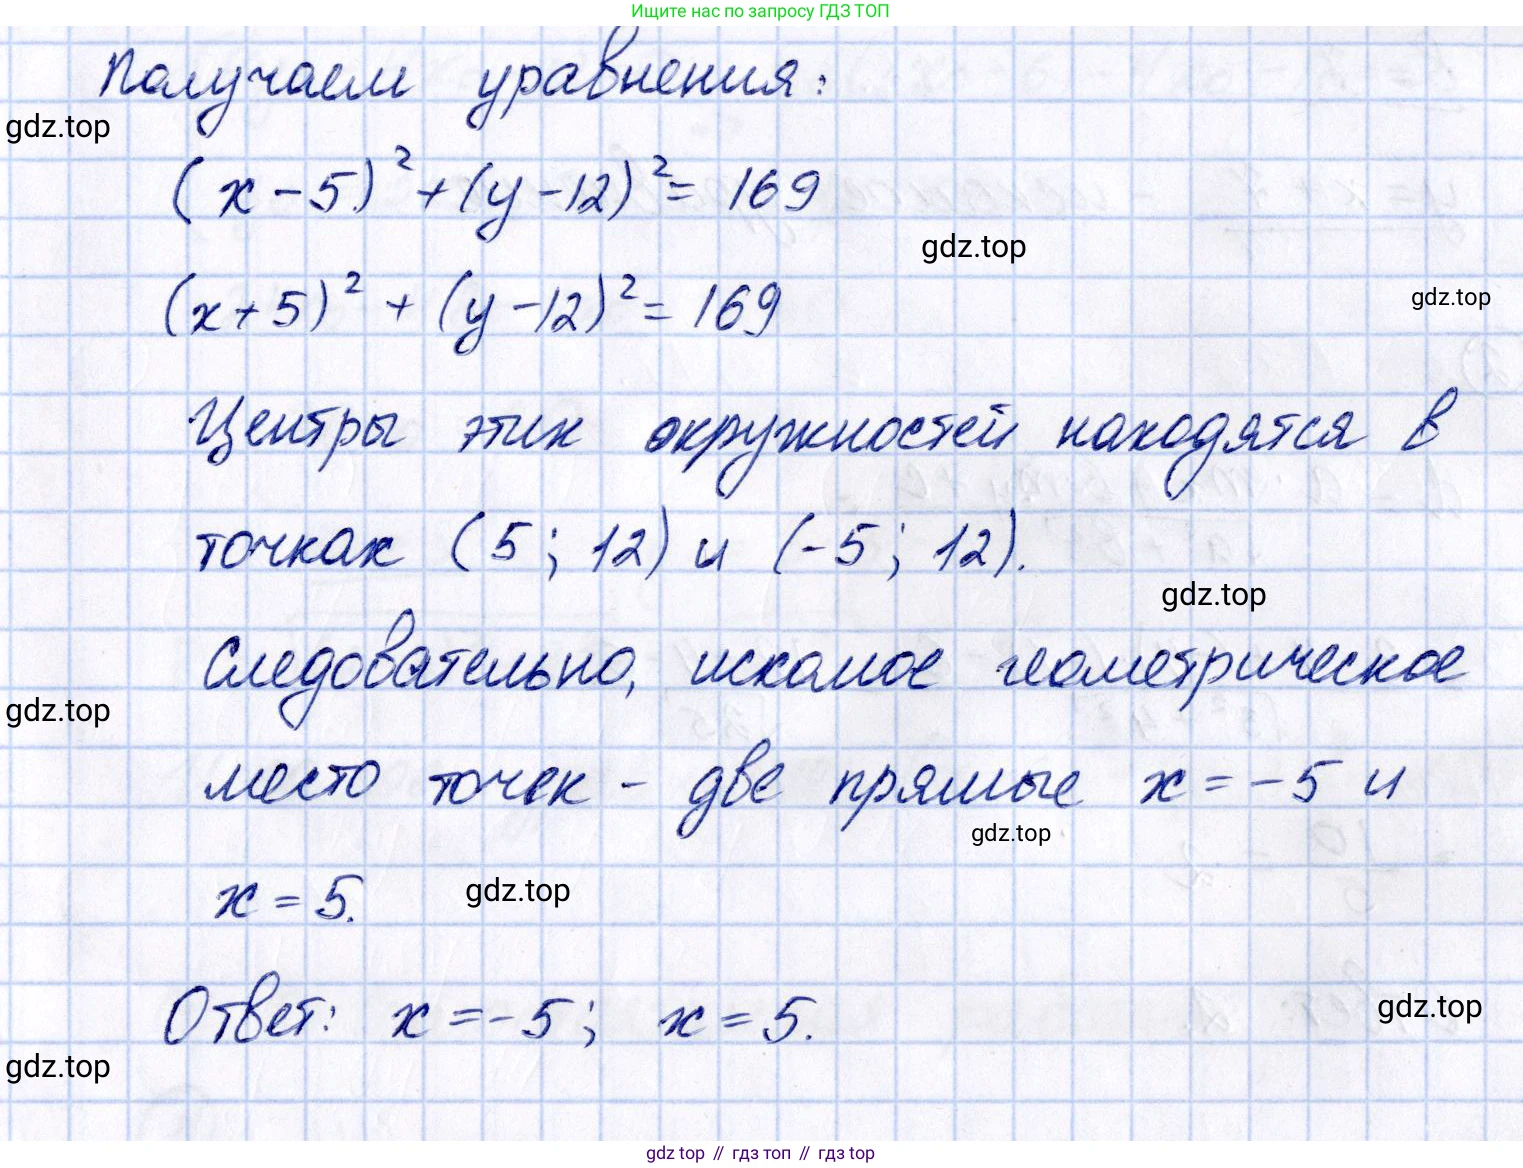 Ищите нас по запросу ГДЗ ТОП
Получаем уравнения:
gdz.top
(x-5)²+(y-12)²=169
gdz.top
(x+5)²+(y-12)²=169
gdz.top
Центры этих окружностей находятся в
точках (5; 12) и (-5; 12).
gdz.top
Следовательно, искомое геометрическое
gdz.top
место точек - две прямые x=-5 и
gdz.top
x=5.
gdz.top
Ответ: x=-5; x=5.
gdz.top
gdz.top
gdz top // гдз топ // гдз top